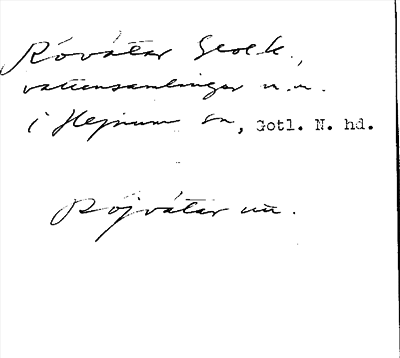 Róvátar Geol.k.,
vattensamlingar n.n.
i Hejnum sn, Gotl. N. hd.
Röjvátar un.